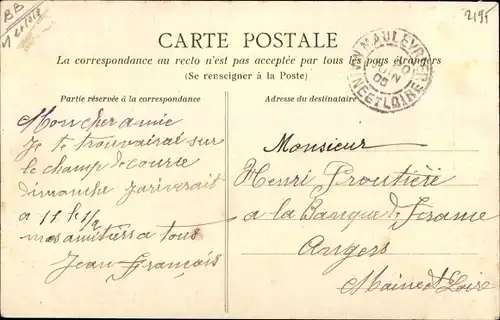 BB
2195
CARTE POSTALE
La correspondance au recto n'est pas acceptée par tous les pays étrangers
(Se renseigner à la Poste)
Partie réservée à la correspondance
Adresse du destinataire
MAULEVRIER
JUIN
05
NE ET LOIRE
Mon cher amie
Je te trouvairai sur
le champ de course
dimanche j'ariverait
a 11 h 1/2
mes amitiers a tous
Jean François
Monsieur
Henri Proutière
a la Banque de France
Angers
Maine et Loire